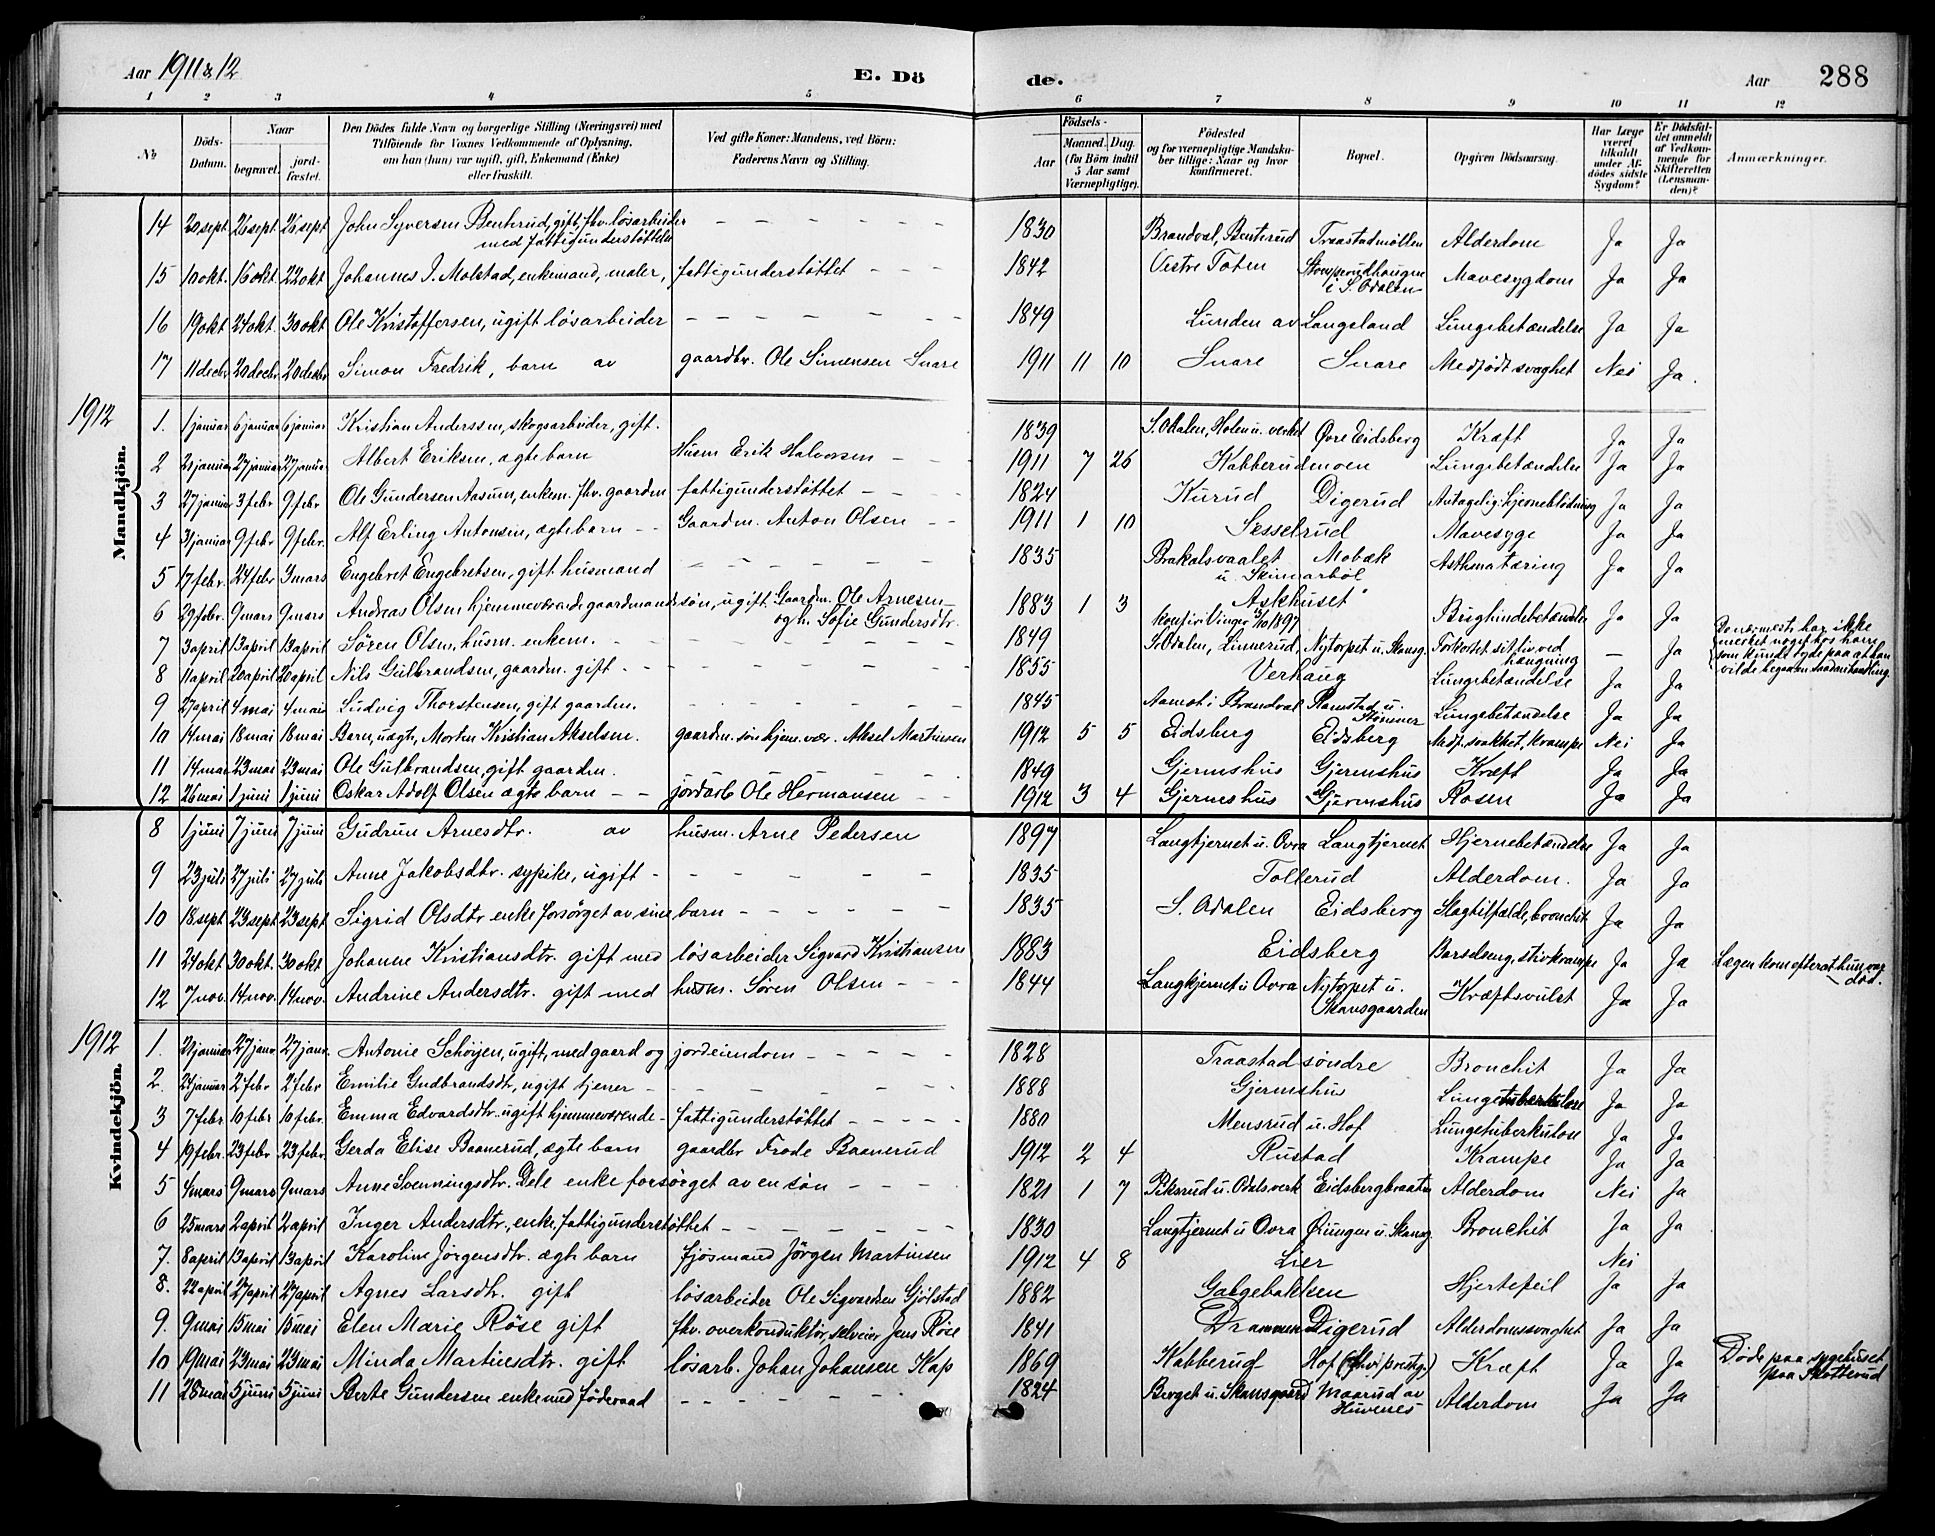 Aar 1911 & 12 E. Dö de. Aar 288
1 2 3 4 5 6 7 8 9 10 11 12
No Döds-Datum. Naar begravet. jord-fæstet. Den Dödes fulde Navn og borgerlige Stilling (Næringsvei) med Tilföiende for Voxnes Vedkommende af Oplysning, om han (hun) var ugift, gift, Enkemand (Enke) eller fraskilt. Ved gifte Koner: Mandens, ved Börn: Faderens Navn og Stilling. Födsels- Aar Maaned. Dag. (for Börn indtil 5 Aar samt Værnepligtige). Födested og for værnepligtige Mandskaber tillige: Naar og hvor konfirmeret. Bopæl. Opgiven Dödsaarsag. Har Læge været tilkaldt under Afdödes sidste Sygdom? Er Dödsfaldet anmeldt af Vedkommende for Skifteretten (Lensmanden)? Anmærkninger.
Mandkjön.
14 20 sept 26 sept 26 sept John Syversen Benterud, gift, fhv. løsarbeider med fattigunderstøttelse 1830 Brandval, Benterud Traastadmøllen Alderdom Ja Ja
15 10 okt. 16 okt 22 okt Johannes J. Molstad, enkemand, maler, fattigunderstøttet 1842 Vestre Toten Stomperudhaugen i S. Odalen Mavesygdom Ja Ja
16 19 okt 24 okt. 30 okt Ole Kristoffersen, ugift løsarbeider 1849 Lunden av Langeland Lungebetændelse Ja Ja
17 11 decbr 20 decbr 20 decbr Simon Fredrik, barn av gaardbr. Ole Simensen Snare 1911 11 10 Snare Snare Medfødt svaghet Nei Ja.
1912
1. 1 januar 6 januar 6 januar Kristian Anderssen, skogsarbeider, gift. 1839 S. Odalen, Holen u. verket Øvre Eidsberg Kræft Ja Ja
2 21 januar 27 januar 27 januar Albert Eriksen, ægte barn Husm Erik Halvorsen 1911 7 26 Kabberudmoen Lungebetændelse Ja Ja
3 27 januar 3 febr 9 febr Ole Gundersen Aasum, enkem. fhv. gaardm fattigunderstøttet 1824 Kurud Digerud Antagelig hjerneblødning Ja Ja
4 31 januar 9 febr 9 febr. Alf Erling Antonsen, ægte barn Gaardm. Anton Olsen 1911 1 10 Sesselrud Mavesyge Ja Ja
5 17 febr. 24 febr 3 mars Engebret Engebretsen, gift husmand 1835 Brakalsvaalet u. Skinnarbøl Mobæk Asthma tæring Ja Ja
6 29 febr. 9 mars 9 mars Andreas Olsen hjemmeværende gaardmandssøn, ugift. Gaardm. Ole Arnesen og h. Sofie Gundersdtr. 1883 1 3 Askhuset konfir i Vinger 1897 Brysthindebetændelse Ja Ja
7 3 april 13 april 13 april Søren Olsen, husm. enkem. 1849 S. Odalen, Linnerud, Nytorpet u. Skansg. Forkortet sit liv ved hængning — Ja De nærmeste har ikke merket noget hos ham som kunde tyde paa at han vilde begaa en saadan handling.
8 11 april 20 april 20 april Nils Gulbrandsen, gaardm. gift. 1855 Verhaug Lungebetændelse Ja Ja
9 27 april 4 mai 4 mai Ludvig Thorstensen, gift gaardm. 1845 Aamot i Brandval Ramstad u. Stømner Lungebetændelse Ja Ja
10 14 mai 18 mai 18 mai Barn, uægt, Morten Kristian Akselsen. gaardm. søn hjem. vær. Aksel Martinsen 1912 5 5 Eidsberg Eidsberg Medf. svakhet, krampe Nei Ja
11 14 mai 23 mai 23 mai Ole Gulbrandsen, gift gaardm. 1849 Gjermshus Gjermshus Kræft Ja Ja
12 26 mai 1 juni 1 juni Oskar Adolf Olsen ægte barn jordarb Ole Hermansen 1912 3 4 Gjermshus Gjermshus Rosen Ja Ja
Kvindekjön.
8 1 juni 7 juni 7 juni Gudrun Arnesdtr. av husm. Arne Pedersen 1897 Langtjernet u. Ovra Langtjernet Hjernebetændelse Ja Ja
9 23 juli 27 juli 27 juli Anne Jakobsdtr. sypike, ugift 1835 Tollerud Alderdom. Ja Ja
10 18 sept 23 sept 23 sept Sigrid Olsdtr enke forsørget av sine barn 1835 S. Odalen Eidsberg Slagtilfælde, bronchit Ja Ja
11 24 okt 30 okt. 30 okt Johanne Kristiansdtr. gift med løsarbeider Sigvard Kristiansen 1883 Eidsberg Barselseng, stivkrampe Ja Ja Lægen kom efter at hun var død.
12 7 nov. 14 nov. 14 nov. Andrine Andersdtr. gift med husm. Søren Olsen 1844 Langkjernet u Ovra Nytorpet u. Skansgaarden Kræftsvulst Ja Ja
1912
1. 21 januar 27 janr. 27 janr. Antonie Schøyen, ugift, med gaard og jordeiendom 1828 Traastad søndre Bronchit Ja Ja
2. 24 januar 2 febr 2 febr Emilie Gudbrandsdtr, ugift tjener 1888 Gjermshus Lungetuberkulose Ja Ja
3 7 febr. 10 febr 10 febr. Emma Edvardsdtr. ugift hjemmeværende fattigunderstøttet 1880 Mensrud u. Hof Lungetuberkulose Ja Ja
4 19 febr. 23 febr 23 febr. Gerda Elise Baanerud, ægte barn gaardbr Frode Baanerud 1912 2 4 Rustad Krampe Ja Ja
5 4 mars 9 mars 9 mars Anne Svenningsdtr. Dele enke forsørget av en søn 1821 1 7 Piksrud u. Odals verk Eidsbergbraaten Alderdom Nei Ja
6 25 mars 2 april 2 april Inger Andersdtr, enke, fattigunderstøttet 1830 Langtjernet u Ovra Øiungen u. Skansg Bronchit Ja Ja
7. 8 april 13 april 13 april Karoline Jørgensdtr. ægte barn fjøsmand Jørgen Martinsen 1912 4 8 Lier Nei
8. 22 april 27 april 27 april Agnes Larsdtr. gift løsarbeider Ole Sigvardsen Gjølstad 1882 Galgebakken Hjertefeil Ja Ja
9. 9 mai 15 mai 15 mai Elen Marie Røse gift fhv. overkonduktør, selveier Jens Røse 1841 Drammen Digerud Alderdomssvaghet Ja Ja
10 19 mai 23 mai 23 mai Minda Martinsdtr. gift løsarb. Johan Johansen Kap 1869 Kabberud Hof Kræft Ja Ja Døde paa sygehuset paa Skotterud
11 28 mai 5 juni 5 juni Berte Gundersen enke med føderaad 1824 Berget u. Skansgaard Maarud av Huvenes Alderdom Ja Ja